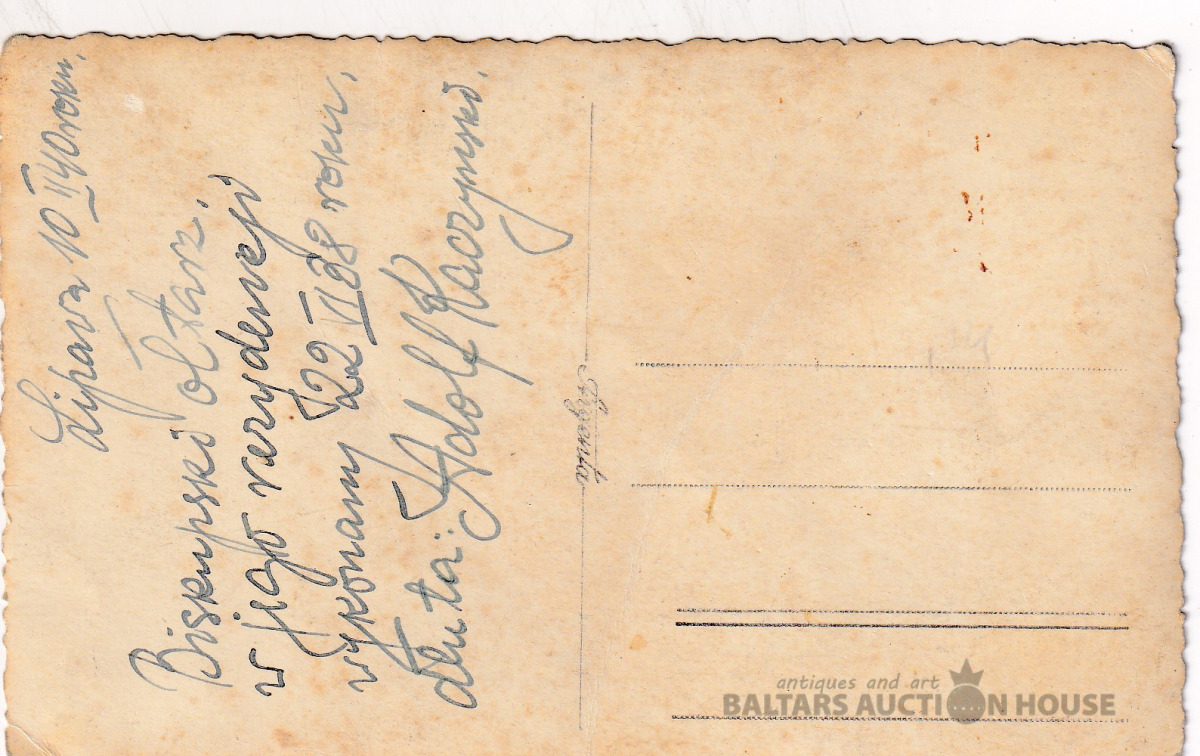 Lipawa 10 II 40 roku.
Biskupski ołtarz.
w jego rezydencji
wykonany 22 VI 38 roku,
dłuta: Adolf Kaczyński.
antiques and art
BALTARS AUCTION HOUSE